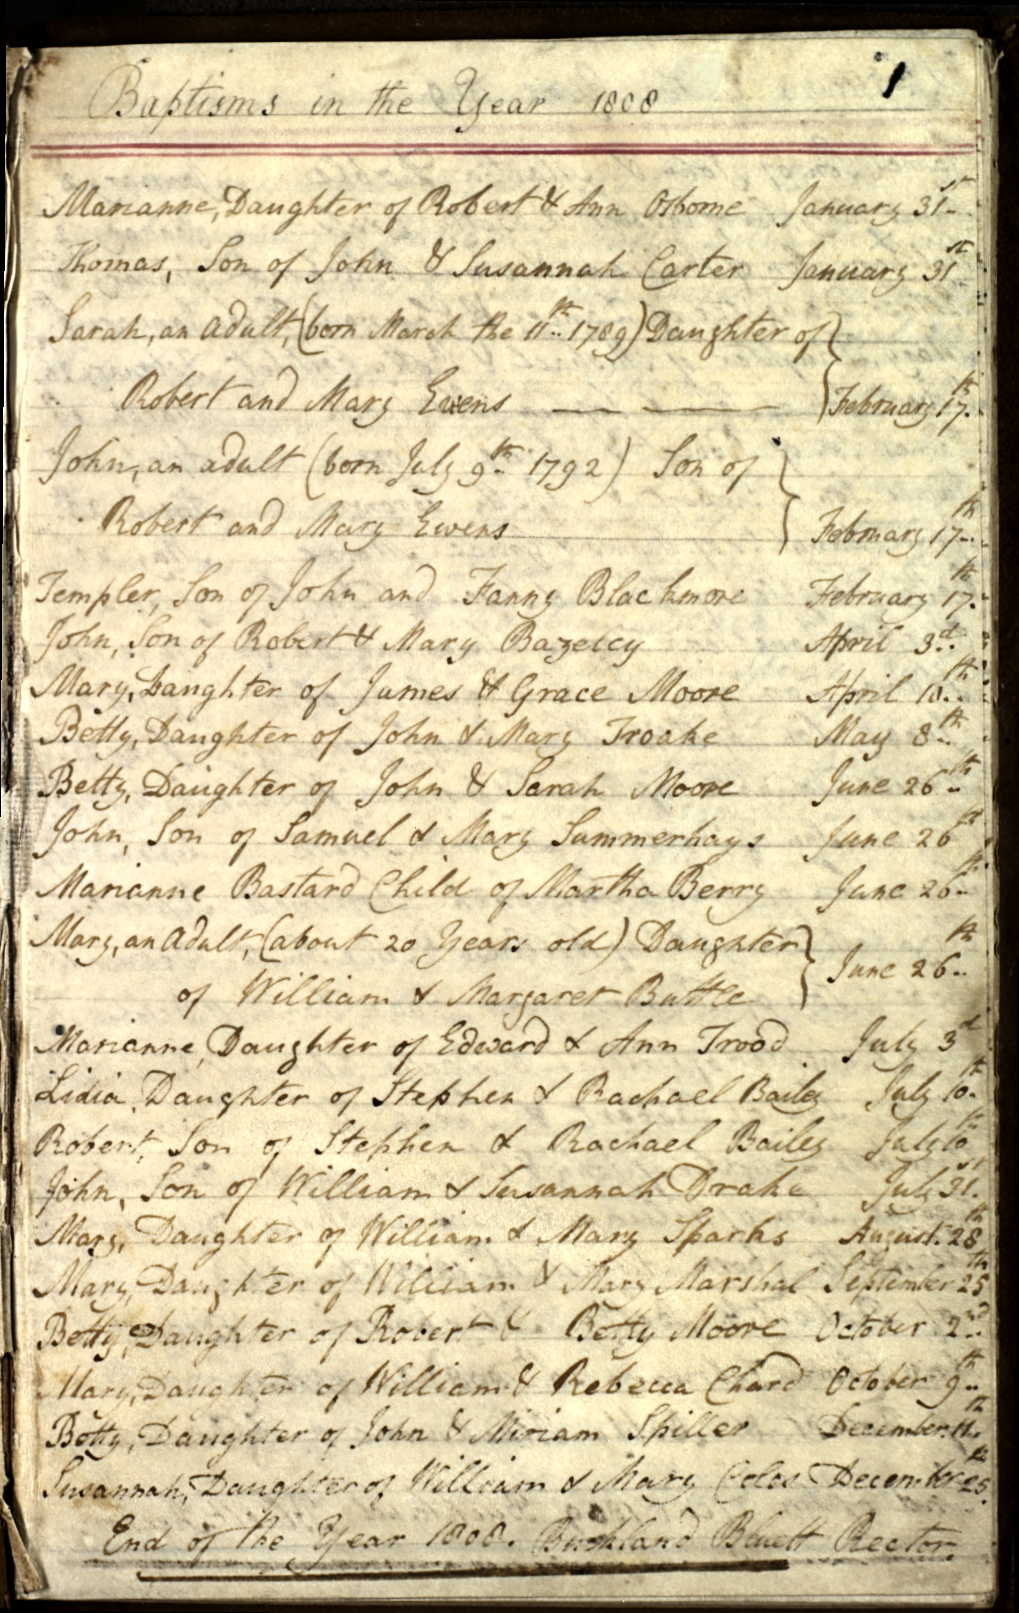 1
Baptisms in the Year 1808
Marianne, Daughter of Robert & Ann Osborne January 31st
Thomas, Son of John & Susannah Carter January 31st
Sarah, an adult, (born March the 11th 1789) Daughter of
Robert and Mary Ewens February 17th
John, an adult (born July 9th 1792) Son of
Robert and Mary Ewens February 17th
Templer, Son of John and Fanny Blackmore February 17th
John, Son of Robert & Mary Bazeley April 3d
Mary, Daughter of James & Grace Moore April 10th
Betty, Daughter of John & Mary Troake May 8th
Betty, Daughter of John & Sarah Moore June 26th
John, Son of Samuel & Mary Summerhays June 26th
Marianne Bastard Child of Martha Berry June 26th
Mary, an adult, (about 20 Years old) Daughter
of William & Margaret Buttle June 26th
Marianne, Daughter of Edward & Ann Trood July 3d
Lidia, Daughter of Stephen & Rachael Bailey July 10th
Robert, Son of Stephen & Rachael Bailey July 10th
John, Son of William & Susannah Drake July 31st
Mary, Daughter of William & Mary Sparks August 28th
Mary, Daughter of William & Mary Marshal September 25th
Betty, Daughter of Robert & Betty Moore October 2nd
Mary, Daughter of William & Rebecca Chard October 9th
Betty, Daughter of John & Miriam Spiller December 11th
Susannah, Daughter of William & Mary Coles December 25th
End of the Year 1808. Buckland Bluett Rector.